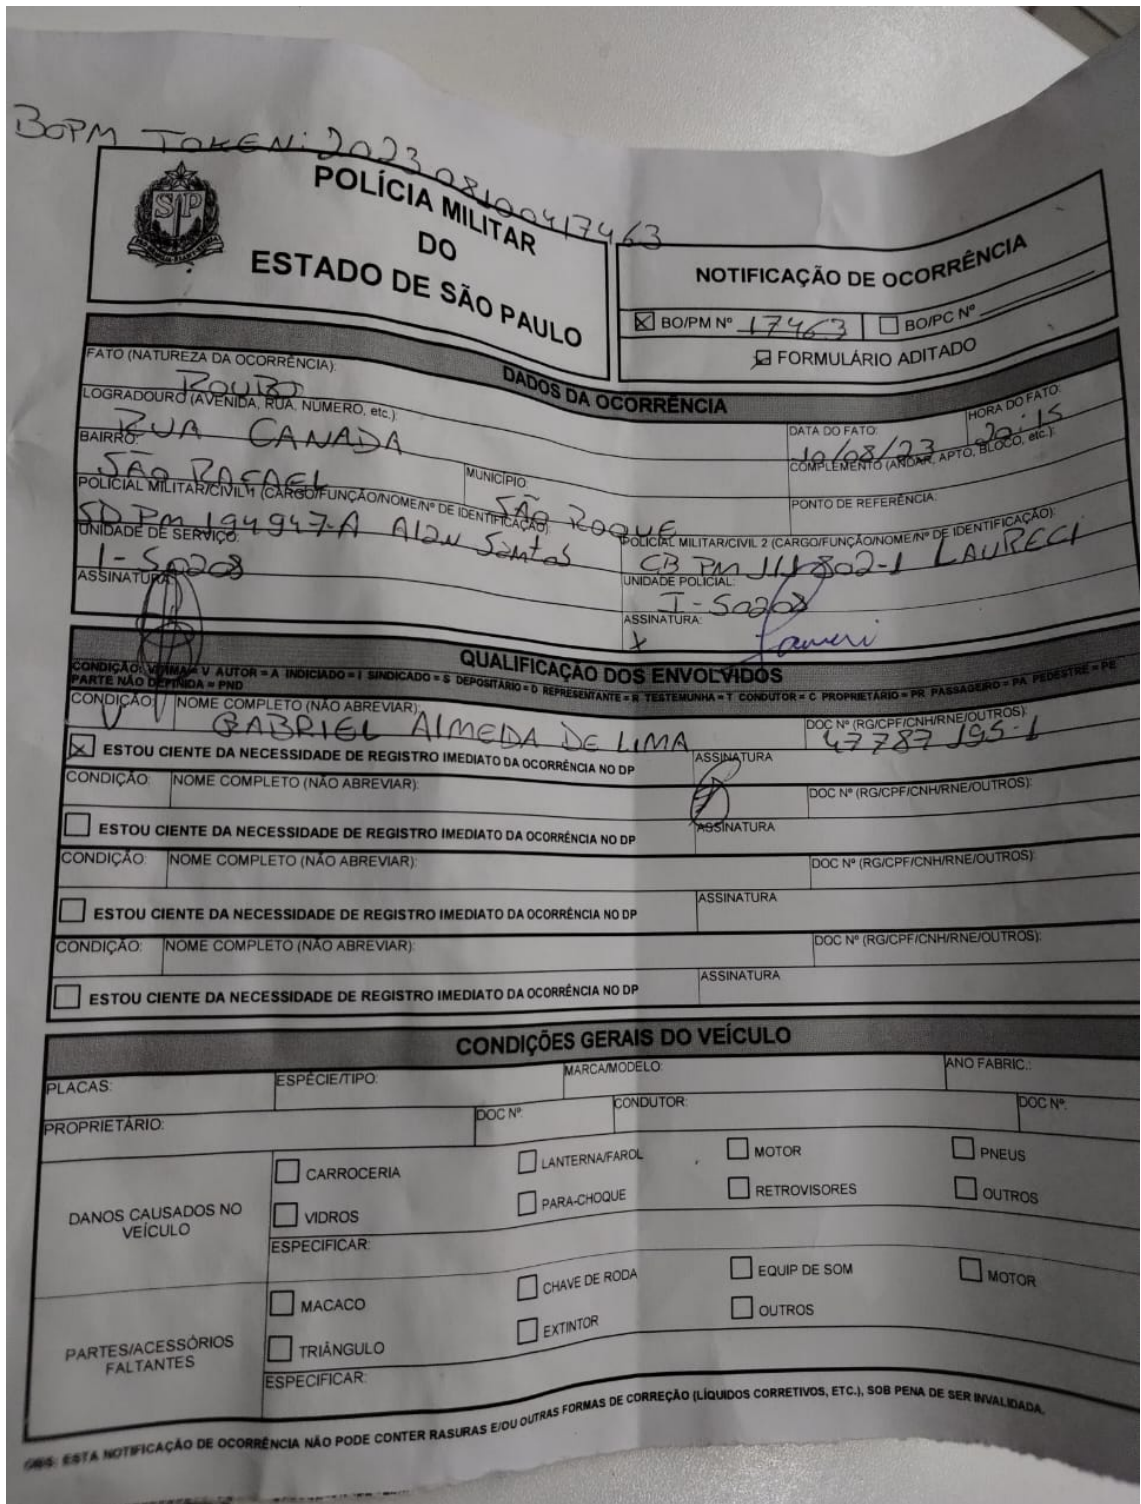 BOPM TOKEN: 202308100417463
POLÍCIA MILITAR
DO
ESTADO DE SÃO PAULO
NOTIFICAÇÃO DE OCORRÊNCIA
BO/PM Nº 17463 BO/PC Nº
FORMULÁRIO ADITADO
DADOS DA OCORRÊNCIA
FATO (NATUREZA DA OCORRÊNCIA):
ROUBO
DATA DO FATO: 10/08/23
HORA DO FATO: 20:15
LOGRADOURO (AVENIDA, RUA, NUMERO, etc.):
RUA CANADA
COMPLEMENTO (ANDAR, APTO, BLOCO, etc.):
BAIRRO:
SÃO RAFAEL
MUNICÍPIO:
SÃO ROQUE
PONTO DE REFERÊNCIA:
POLICIAL MILITAR/CIVIL 1 (CARGO/FUNÇÃO/NOME/Nº DE IDENTIFICAÇÃO):
SD PM 194947-A Alan Santos
POLICIAL MILITAR/CIVIL 2 (CARGO/FUNÇÃO/NOME/Nº DE IDENTIFICAÇÃO):
CB PM 111802-1 LAURECI
UNIDADE DE SERVIÇO:
I-50208
UNIDADE POLICIAL:
I-50208
ASSINATURA:
ASSINATURA:
X
QUALIFICAÇÃO DOS ENVOLVIDOS
CONDIÇÃO: VÍTIMA = V AUTOR = A INDICIADO = I SINDICADO = S DEPOSITÁRIO = D REPRESENTANTE = R TESTEMUNHA = T CONDUTOR = C PROPRIETÁRIO = PR PASSAGEIRO = PA PEDESTRE = PE
PARTE NÃO DEFINIDA = PND
CONDIÇÃO: V NOME COMPLETO (NÃO ABREVIAR): DOC Nº (RG/CPF/CNH/RNE/OUTROS):
GABRIEL ALMEDA DE LIMA 47787195-1
ESTOU CIENTE DA NECESSIDADE DE REGISTRO IMEDIATO DA OCORRÊNCIA NO DP ASSINATURA
CONDIÇÃO: NOME COMPLETO (NÃO ABREVIAR): DOC Nº (RG/CPF/CNH/RNE/OUTROS):
ESTOU CIENTE DA NECESSIDADE DE REGISTRO IMEDIATO DA OCORRÊNCIA NO DP ASSINATURA
CONDIÇÃO: NOME COMPLETO (NÃO ABREVIAR): DOC Nº (RG/CPF/CNH/RNE/OUTROS):
ESTOU CIENTE DA NECESSIDADE DE REGISTRO IMEDIATO DA OCORRÊNCIA NO DP ASSINATURA
CONDIÇÃO: NOME COMPLETO (NÃO ABREVIAR): DOC Nº (RG/CPF/CNH/RNE/OUTROS):
ESTOU CIENTE DA NECESSIDADE DE REGISTRO IMEDIATO DA OCORRÊNCIA NO DP ASSINATURA
CONDIÇÕES GERAIS DO VEÍCULO
PLACAS: ESPÉCIE/TIPO: MARCA/MODELO: ANO FABRIC.:
PROPRIETÁRIO: DOC Nº: CONDUTOR: DOC Nº:
DANOS CAUSADOS NO
VEÍCULO
CARROCERIA LANTERNA/FAROL MOTOR PNEUS
VIDROS PARA-CHOQUE RETROVISORES OUTROS
ESPECIFICAR:
PARTES/ACESSÓRIOS
FALTANTES
MACACO CHAVE DE RODA EQUIP DE SOM MOTOR
TRIÂNGULO EXTINTOR OUTROS
ESPECIFICAR:
OBS: ESTA NOTIFICAÇÃO DE OCORRÊNCIA NÃO PODE CONTER RASURAS E/OU OUTRAS FORMAS DE CORREÇÃO (LÍQUIDOS CORRETIVOS, ETC.), SOB PENA DE SER INVALIDADA.